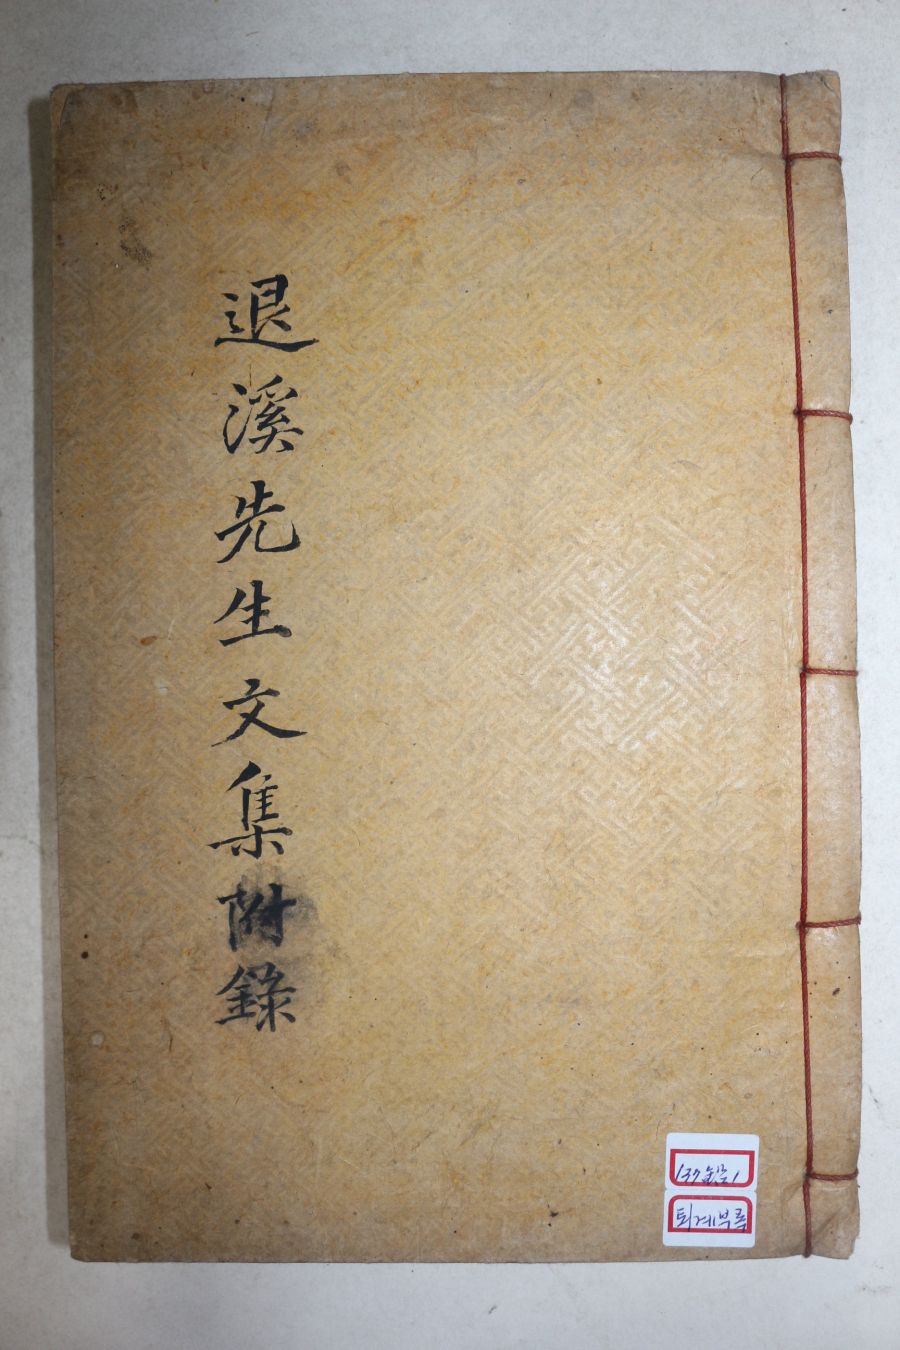 退溪先生文集附錄
137
퇴계부록